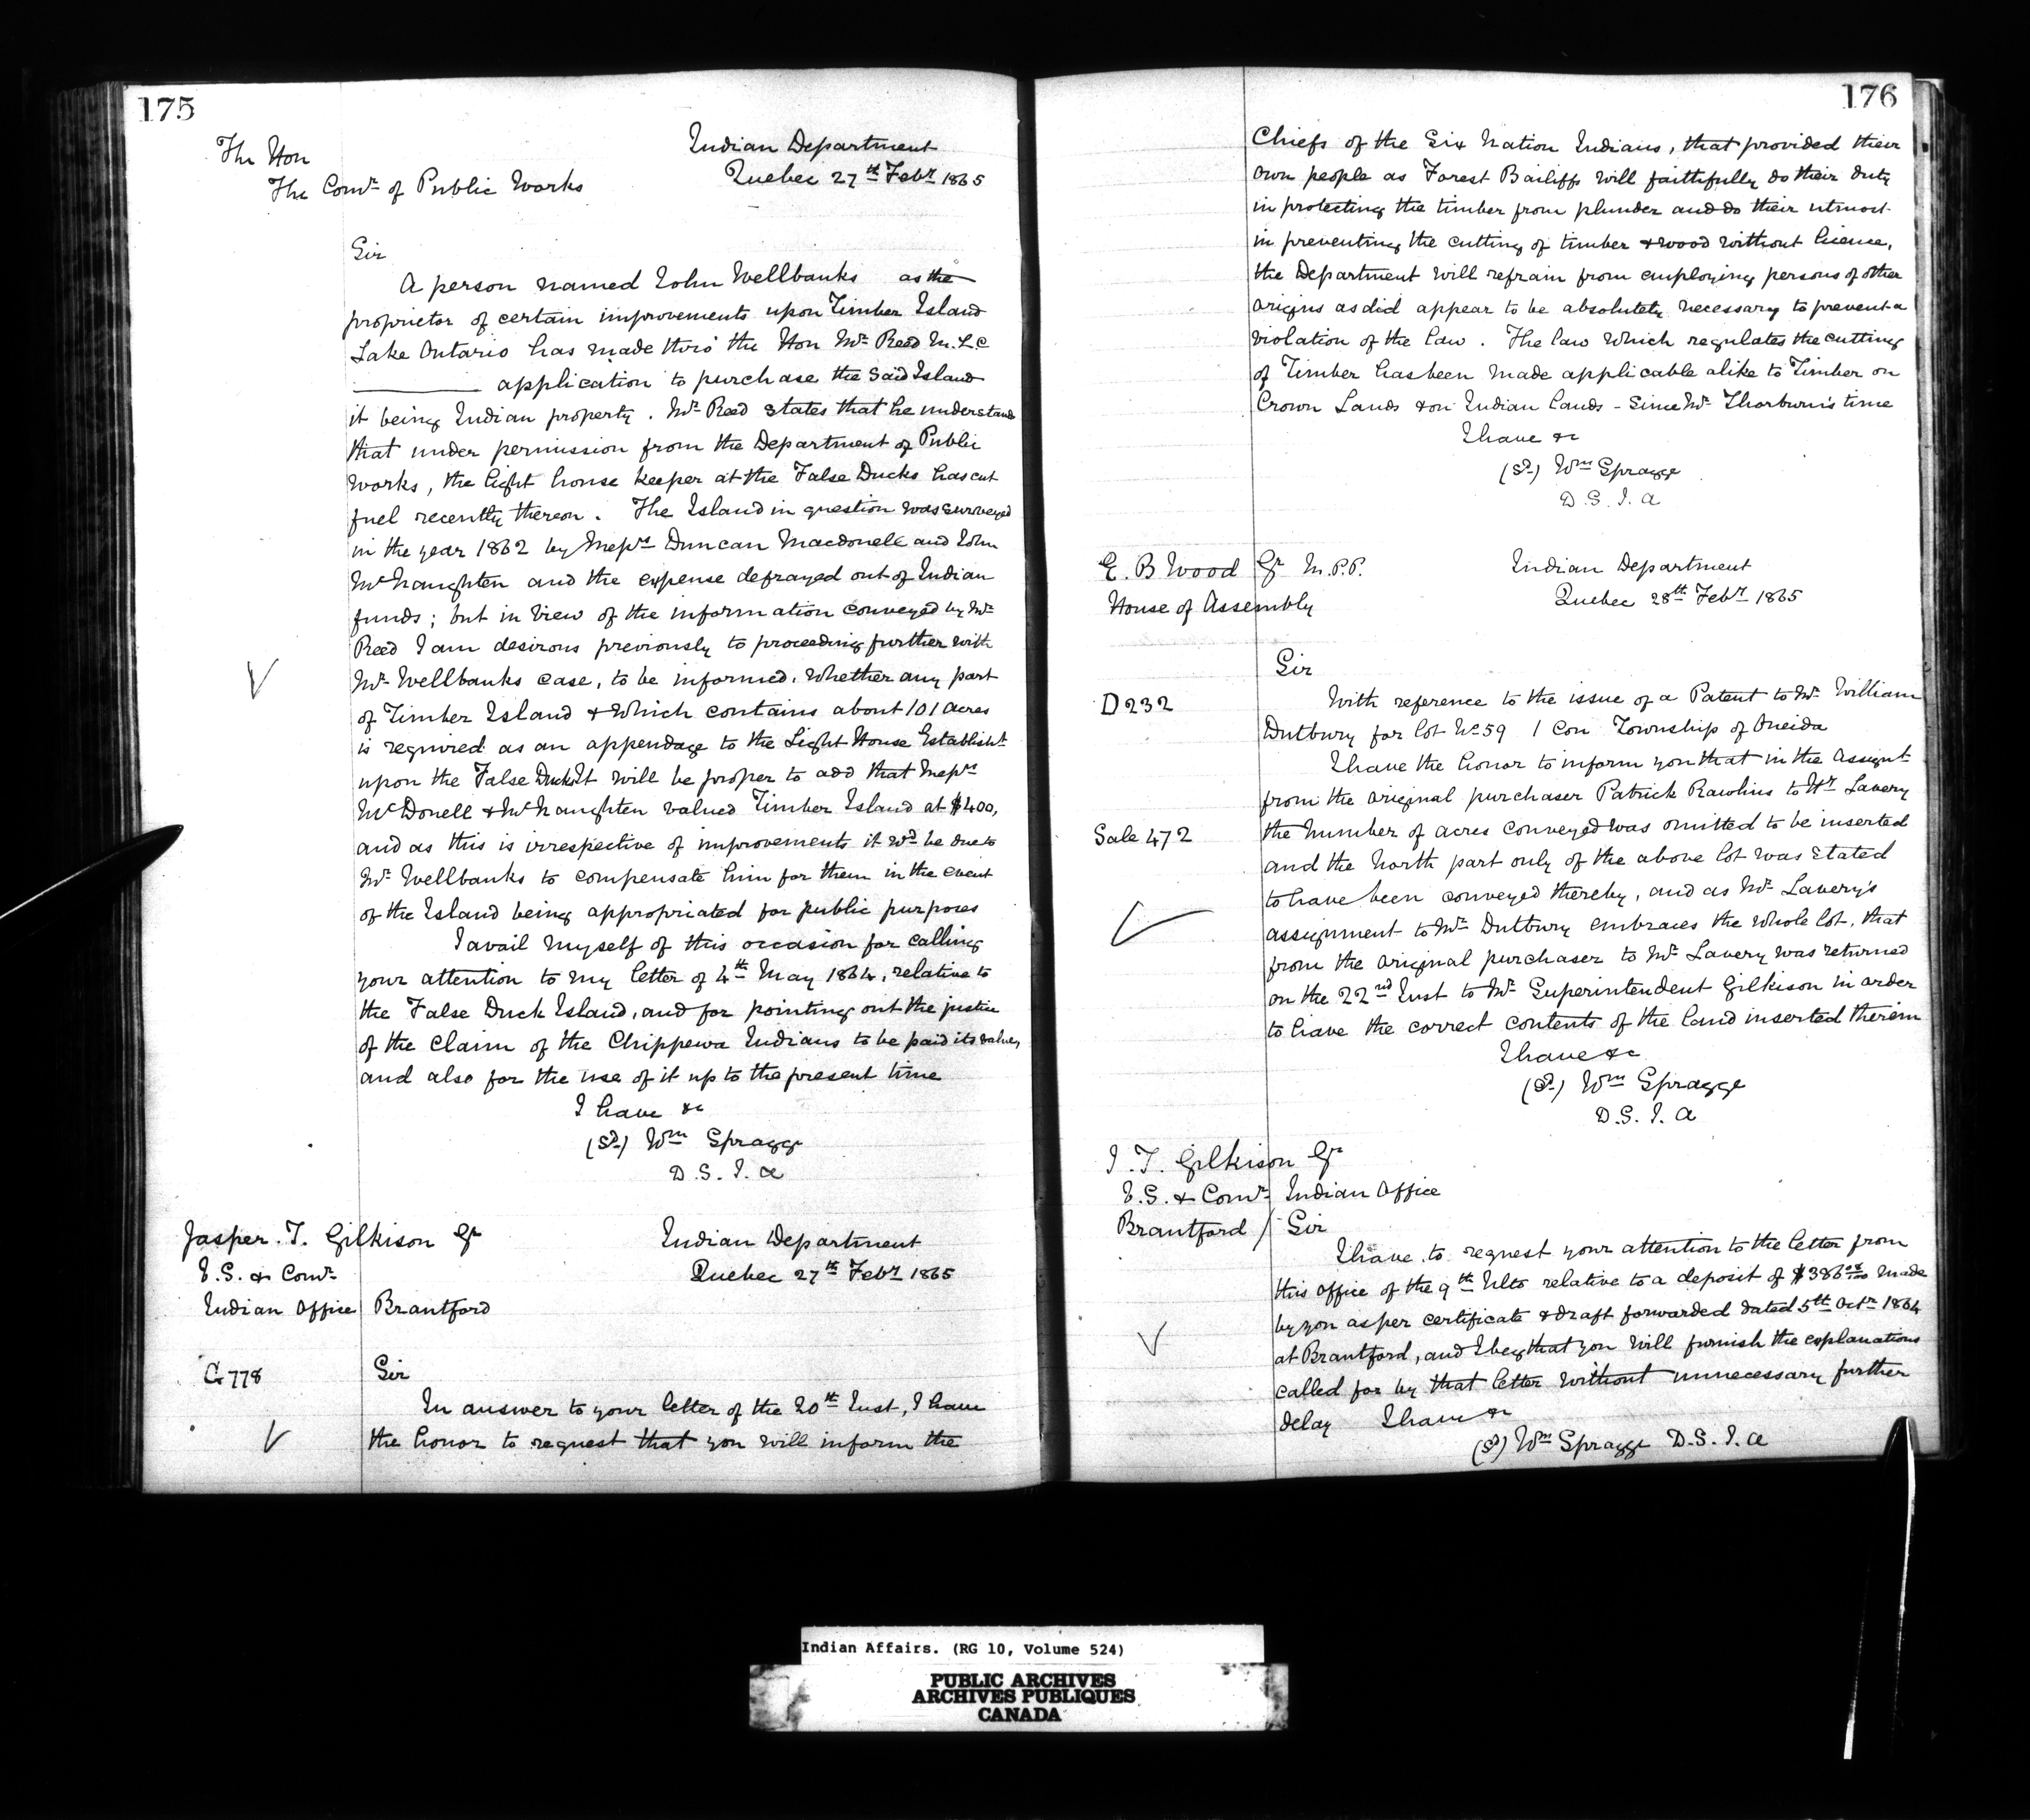 175
The Hon
The Comr of Public Works
Indian Department
Quebec 27th Febr 1865
Sir
A person named John Wellbanks as the
proprietor of certain improvements upon Timber Island
Lake Ontario has made thro' the Hon Mr Reed M.L.C
application to purchase the said Island
it being Indian property. Mr Reed states that he understands
that under permission from the Department of Public
Works, the light house keeper at the False Ducks has cut
fuel recently thereon. The Island in question was surveyed
in the year 1862 by Messrs Duncan Macdonell and John
McNaughten and the expense defrayed out of Indian
funds; but in view of the information conveyed by Mr
Reed I am desirous previously to proceeding further with
Mr Wellbanks case, to be informed, whether any part
of Timber Island & which contains about 101 acres
is required as an appendage to the Light House Establisht
upon the False Ducks It will be proper to add that Messrs
McDonell & McNaughten valued Timber Island at $400,
and as this is irrespective of improvements it wd be due to
Mr Wellbanks to compensate him for them in the event
of the Island being appropriated for public purposes
I avail myself of this occasion for calling
your attention to my letter of 4th May 1864, relative to
the False Duck Island, and for pointing out the justice
of the claim of the Chippewa Indians to be paid its value,
and also for the use of it up to the present time
I have &c
(Sd) Wm Spragge
D.S.I.A
Jasper. T. Gilkison Esqr
V.S. & Comr
Indian Office Brantford
Indian Department
Quebec 27th Febr 1865
G778
Sir
In answer to your letter of the 20th Inst, I have
the honor to request that you will inform the
176
Chiefs of the Six Nation Indians, that provided their
own people as Forest Bailiffs will faithfully do their duty
in protecting the timber from plunder and do their utmost
in preventing the cutting of timber & wood without licence,
the Department will refrain from employing persons of other
origins as did appear to be absolutely necessary to prevent a
violation of the law. The law which regulates the cutting
of Timber has been made applicable alike to Timber on
Crown Lands & on Indian lands - since Mr Thorburn's time
I have &c
(Sd) Wm Spragge
D.S.I.A
E. B Wood Esqr M.P.P.
House of Assembly
Indian Department
Quebec 28th Febr 1865
Sir
D232
With reference to the issue of a Patent to Mr William
Dutbury for lot No 59 1 Con Township of Oneida
I have the honor to inform you that in the Assignt
from the original purchaser Patrick Rawlins to Mr Lavery
Sale 472
the number of acres conveyed was omitted to be inserted
and the North part only of the above lot was stated
to have been conveyed thereby, and as Mr Lavery's
assignment to Mr Dutbury embraces the whole lot, that
from the original purchaser to Mr Lavery was returned
on the 22nd Inst to Mr Superintendent Gilkison in order
to have the correct contents of the land inserted therein
I have &c
(Sd) Wm Spragge
D.S.I.A
J. T. Gilkison Esqr
V.S. & Comr Indian Office
Brantford / Sir
I have to request your attention to the letter from
this office of the 9th Ulto relative to a deposit of $386 08/100 made
by you as per certificate & draft forwarded dated 5th Octr 1864
at Brantford, and I beg that you will furnish the explanations
called for by that letter without unnecessary further
delay I have &c
(Sd) Wm Spragge D.S.I.A
Indian Affairs. (RG 10, Volume 524)
PUBLIC ARCHIVES
ARCHIVES PUBLIQUES
CANADA